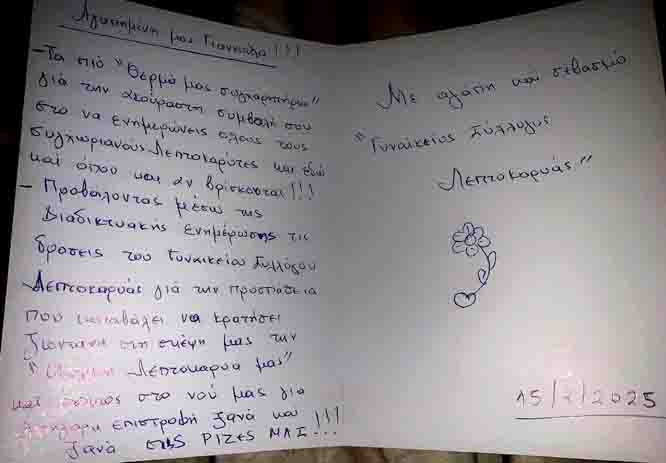 Αγαπημένη μου Γιαννούλα!!!
- Τα πιο "Θερμά μας συγχαρητήρια"
γιά την ακούραστη συμβολή σου
στο να ενημερώνεις όλους τους
συγχωριανούς Λεπτοκαρύτες και εδώ
και όπου και αν βρίσκονται!!!
- Προβάλοντας μέσω της
Διαδικτυακής Ενημέρωσης τις
δράσεις του Γυναικείου Συλλόγου
Λεπτοκαρυάς γιά την προσπάθεια
που καταβάλει να κρατήσει
ζωντανή στη σκέψη μας την
Λεπτοκαρυά μας"
και στο νού μας για
επιστροφή ξανά και
ξανά στις ΡΙΖΕΣ ΜΑΣ!!!
Με αγάπη και σεβασμό
"Γυναικείος Σύλλογος
Λεπτοκαρυάς"
15/7/2025